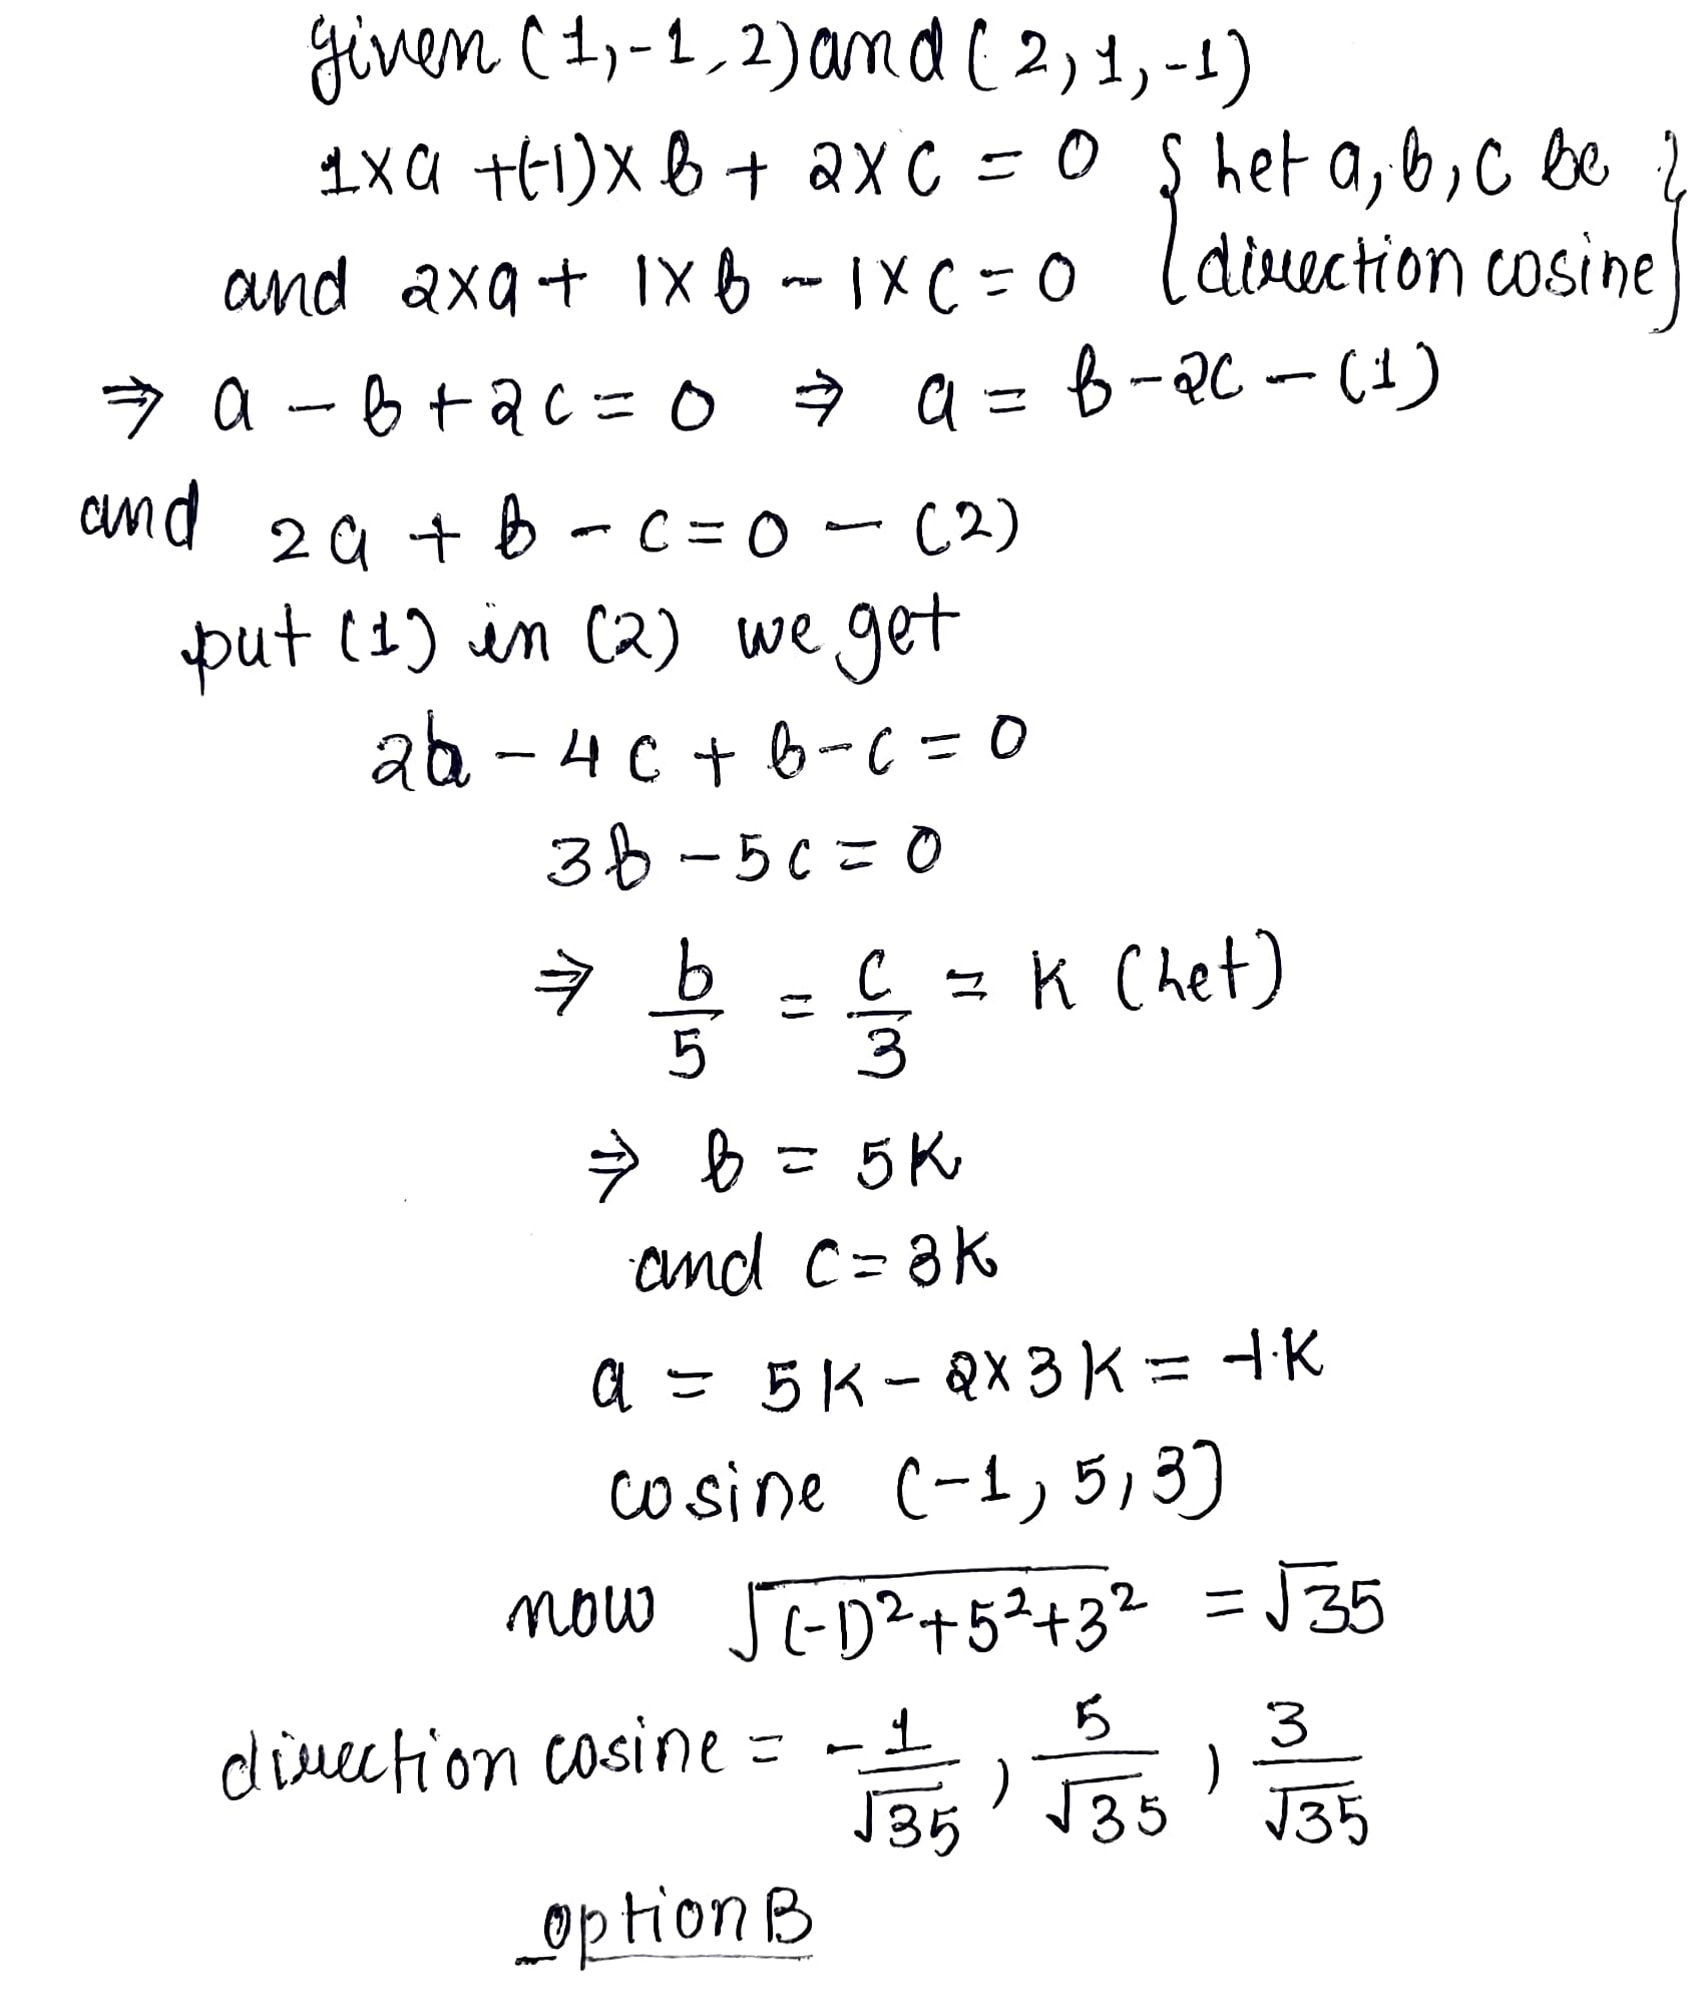 given (1,-1,2) and (2,1,-1)
1×a +(-1)× b + 2×c = 0 { let a, b, c be }
and 2×a + 1×b - 1×c = 0 { direction cosine }
⇒ a - b + 2c = 0 ⇒ a = b - 2c - (1)
and 2a + b - c = 0 - (2)
put (1) in (2) we get
2b - 4c + b - c = 0
3b - 5c = 0
⇒ b/5 = c/3 = K (let)
⇒ b = 5K
and c = 3K
a = 5K - 2×3K = -1.K
cosine (-1, 5, 3)
now √(-1)²+5²+3² = √35
direction cosine = -1/√35, 5/√35, 3/√35
option B